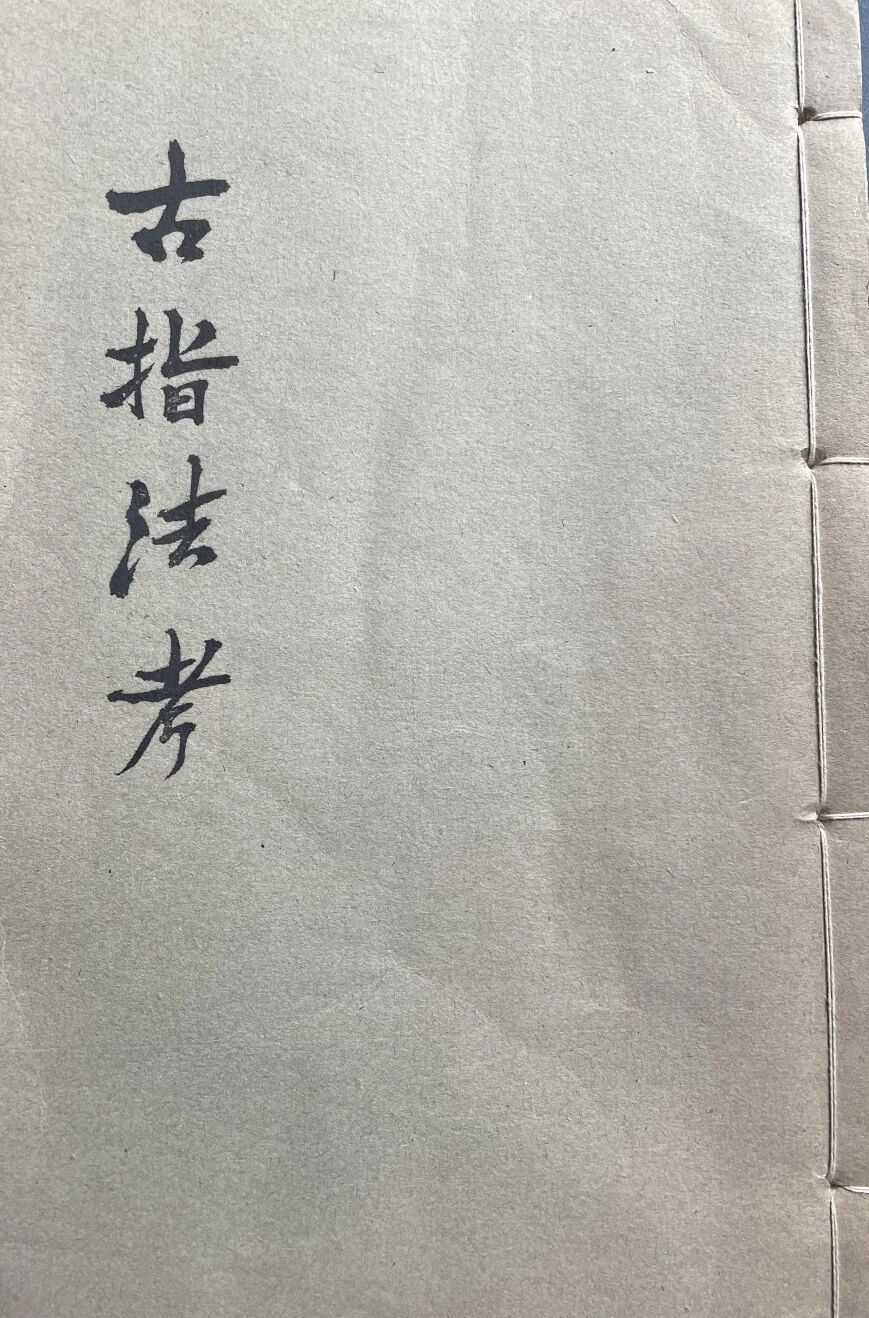 古指法考